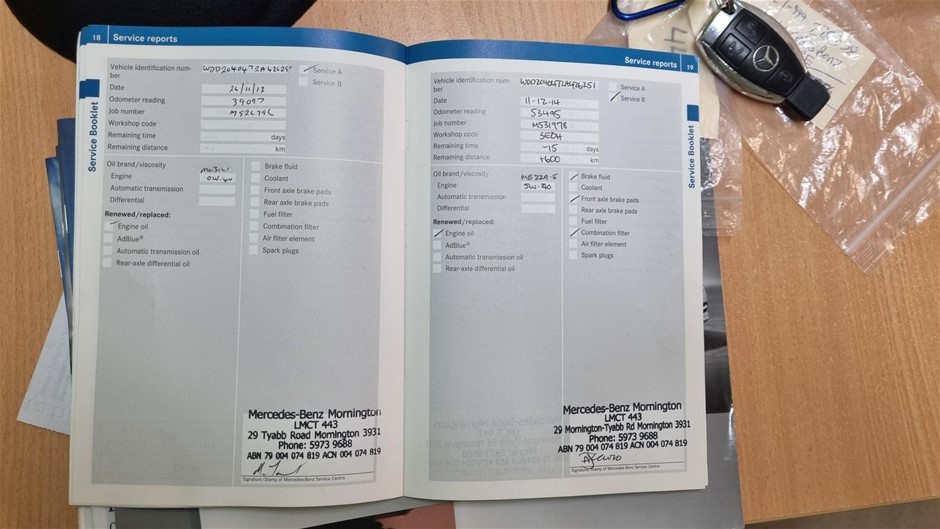 18 Service reports
Vehicle identification num-
ber
Service A
Service B
Date 26/11/13
Odometer reading 39097
Job number
Workshop code
Remaining time days
Remaining distance km
Oil brand/viscosity
Engine 0W-40
Automatic transmission
Differential
Renewed/replaced:
Engine oil
AdBlue®
Automatic transmission oil
Rear-axle differential oil
Brake fluid
Coolant
Front axle brake pads
Rear axle brake pads
Fuel filter
Combination filter
Air filter element
Spark plugs
Service Booklet
Mercedes-Benz Mornington
LMCT 443
29 Tyabb Road Mornington 3931
Phone: 5973 9688
ABN 79 004 074 819 ACN 004 074 819
Signature/Stamp of Mercedes-Benz Service Centre
Service reports 19
Vehicle identification num-
ber
Service A
Service B
Date 11-12-14
Odometer reading 53495
Job number M531978
Workshop code
Remaining time -15 days
Remaining distance +600 km
Oil brand/viscosity MB229-5
Engine 5W-40
Automatic transmission
Differential
Renewed/replaced:
Engine oil
AdBlue®
Automatic transmission oil
Rear-axle differential oil
Brake fluid
Coolant
Front axle brake pads
Rear axle brake pads
Fuel filter
Combination filter
Air filter element
Spark plugs
Service Booklet
Mercedes-Benz Mornington
LMCT 443
29 Mornington-Tyabb Rd Mornington 3931
Phone: 5973 9688
ABN 79 004 074 819 ACN 004 074 819
Signature/Stamp of Mercedes-Benz Service Centre